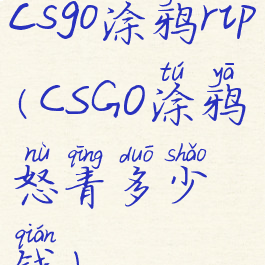 csgo涂鸦rtp
(CSGO涂鸦
tú yā
怒青多少
nù qīng duō shǎo
钱)
qián